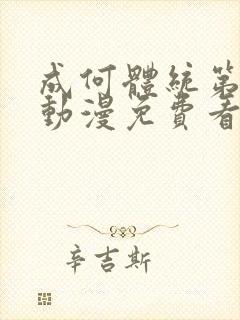 成何體統第
動漫免費看
辛吉斯